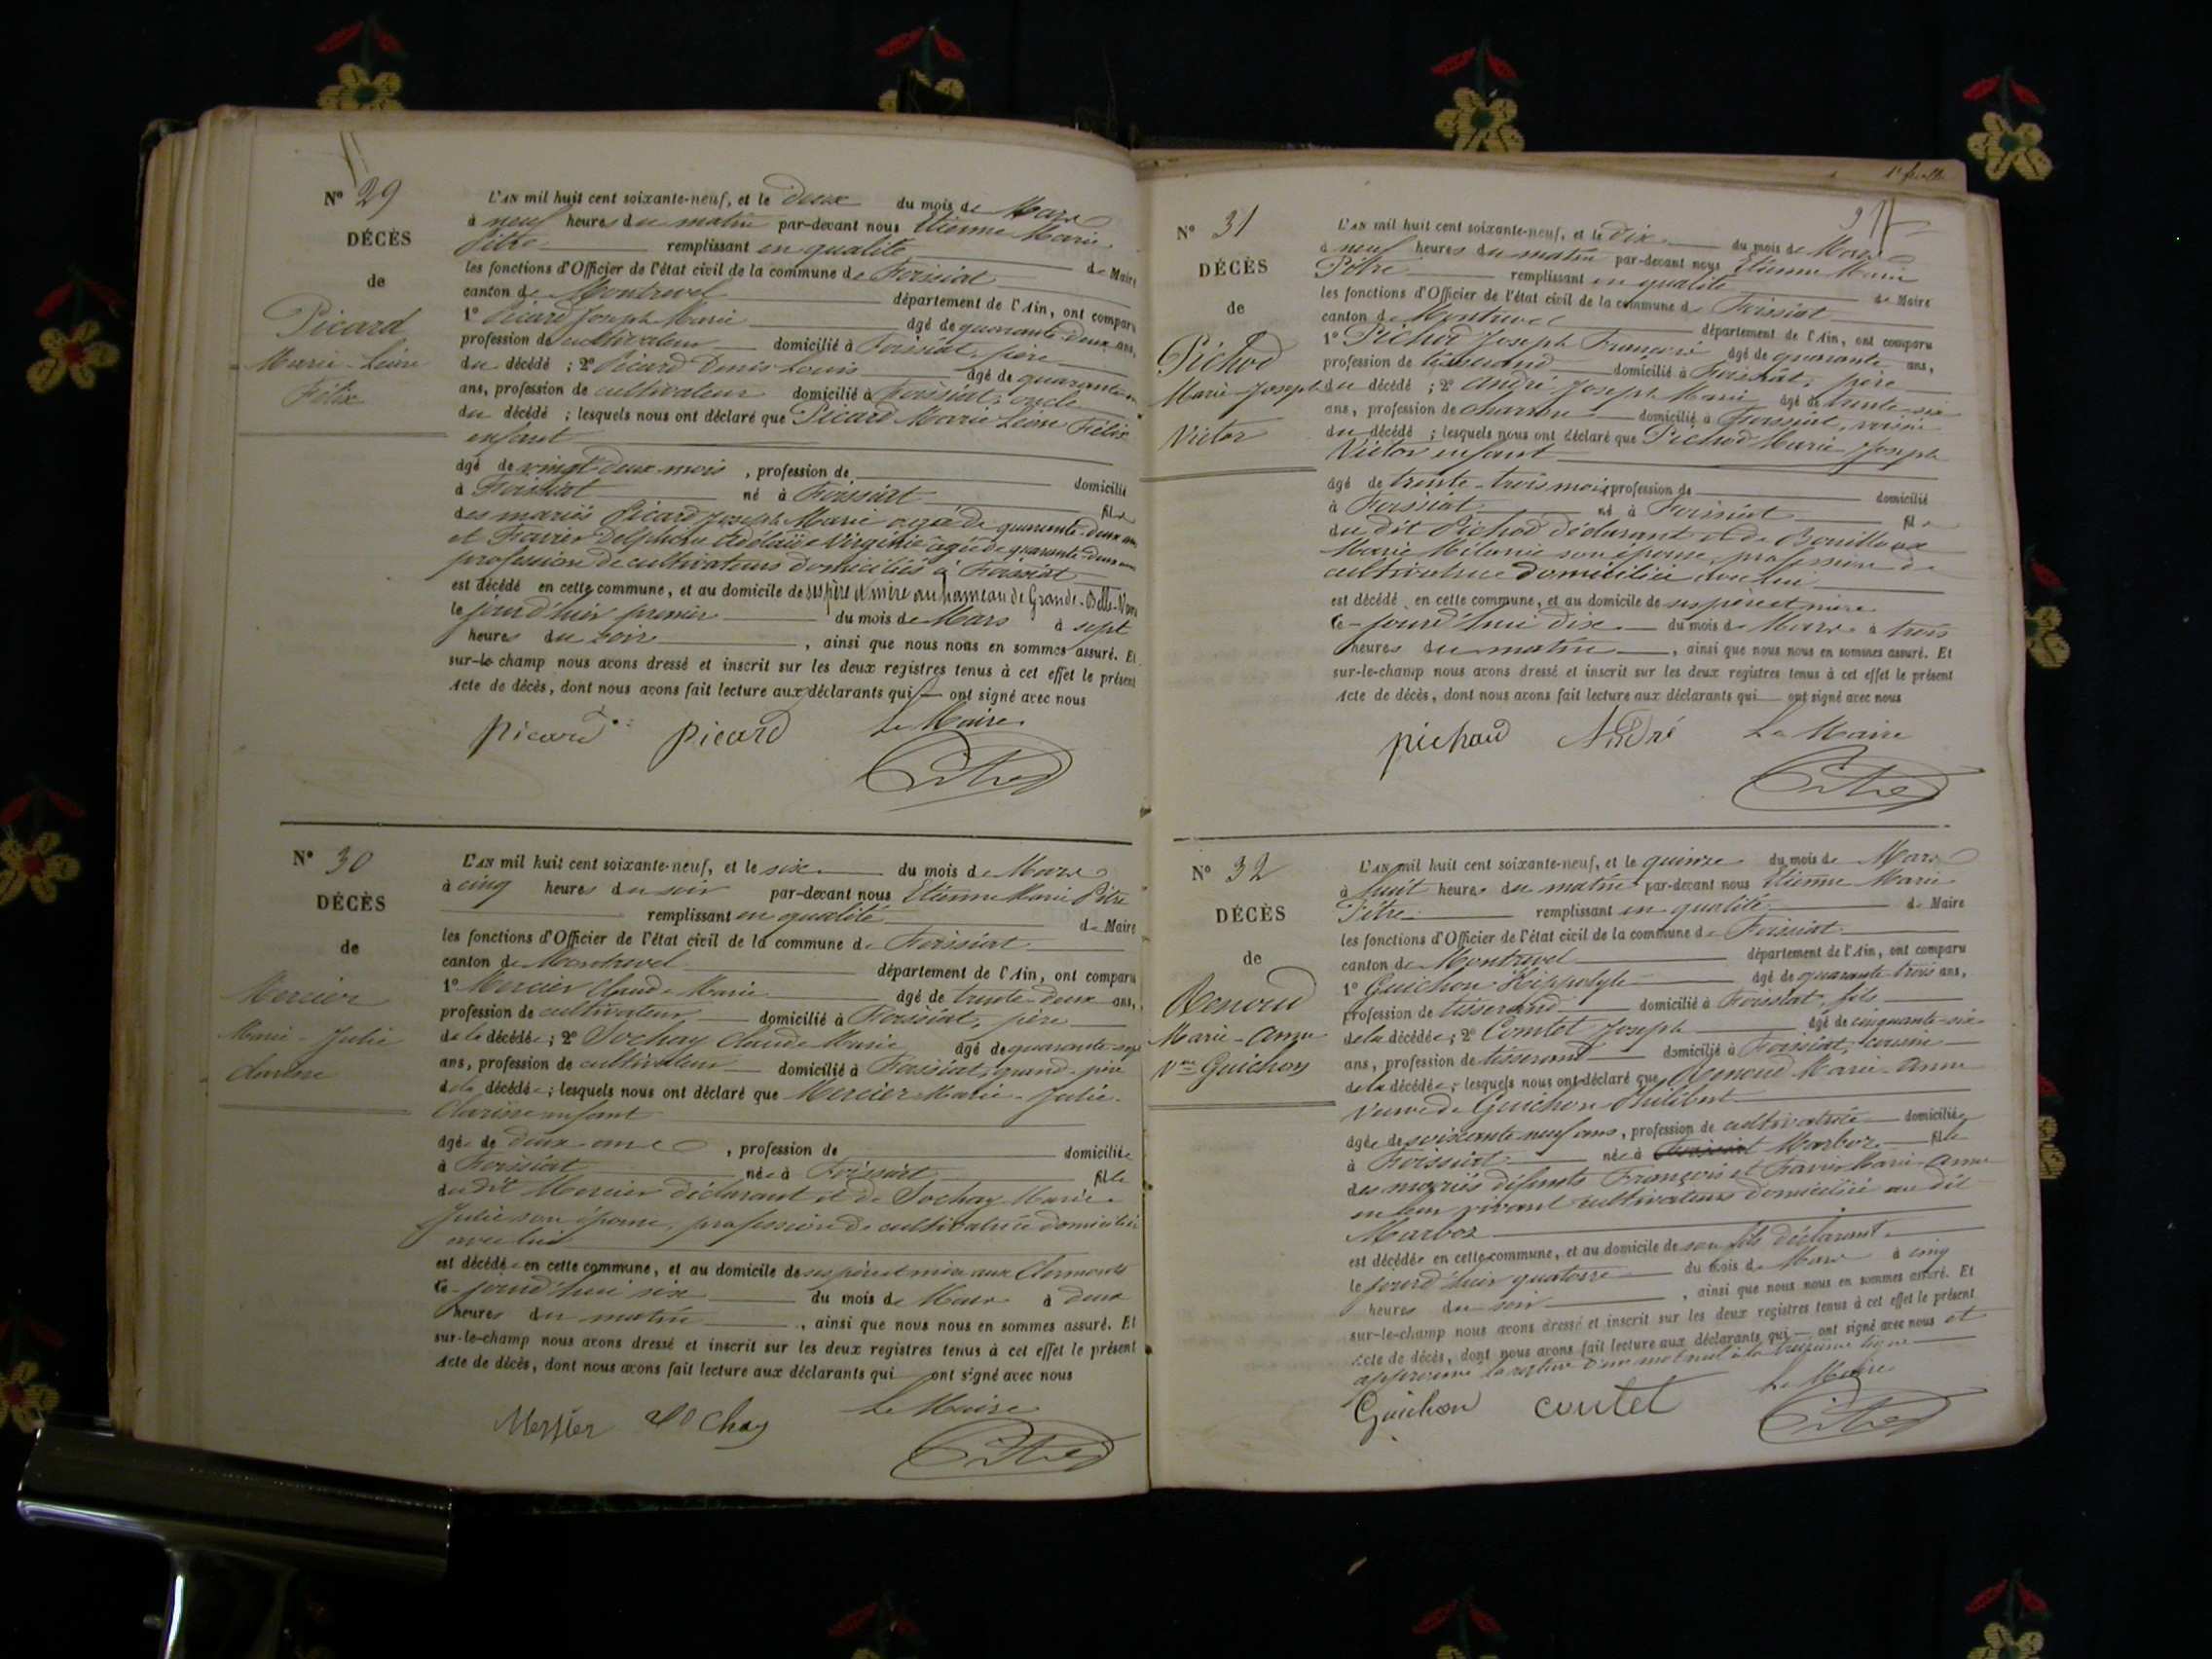 N° 29
DÉCÈS
de
Picard
Marie-Léon
Félix
L'AN mil huit cent soixante-neuf, et le deux du mois de Mars
à neuf heures du matin par-devant nous Etienne Marie
Pitre remplissant en qualité de Maire
les fonctions d'Officier de l'état civil de la commune de Foissiat
canton de Montrevel département de l'Ain, ont comparu
1° Picard Joseph Marie âgé de quarante-deux ans,
profession de cultivateur domicilié à Foissiat, père
du décédé ; 2° Picard Denis Louis âgé de quarante
ans, profession de cultivateur domicilié à Foissiat, oncle
du décédé ; lesquels nous ont déclaré que Picard Marie Léon Félix
enfant
âgé de vingt deux mois , profession de domicilié
à Foissiat né à Foissiat fils
des mariés Picard Joseph Marie agé de quarante-deux ans
et Favier Delphine Adélaïde Virginie agée de quarante-deux ans
profession de cultivateurs domiciliés à Foissiat
est décédé en cette commune, et au domicile de ses père et mère au hameau de Grande-Belle-
le jour d'hier premier du mois de Mars à sept
heures du soir , ainsi que nous nous en sommes assuré. Et
sur-le-champ nous avons dressé et inscrit sur les deux registres tenus à cet effet le présent
Acte de décès, dont nous avons fait lecture aux déclarants qui ont signé avec nous
picard picard Le Maire
Pitre
N° 30
DÉCÈS
de
Mercier
Marie-Julie
Clarisse
L'AN mil huit cent soixante-neuf, et le six du mois de Mars
à cinq heures du soir par-devant nous Etienne Marie Pitre
remplissant en qualité de Maire
les fonctions d'Officier de l'état civil de la commune de Foissiat
canton de Montrevel département de l'Ain, ont comparu
1° Mercier Claude Marie âgé de trente-deux ans,
profession de cultivateur domicilié à Foissiat, père
de la décédée ; 2° Sochay Claude Marie âgé de quarante-sept
ans, profession de cultivateur domicilié à Foissiat, grand-père
de la décédée ; lesquels nous ont déclaré que Mercier Marie-Julie-
Clarisse enfant
âgée de deux ans , profession de domiciliée
à Foissiat née à Foissiat fille
du dit Mercier déclarant et de Sochay Marie
Julie son épouse, profession de cultivatrice domiciliée
avec lui
est décédée en cette commune, et au domicile de ses père et mère aux Clermonts
Ce-jourd'hui six du mois de Mars à deux
heures du matin , ainsi que nous nous en sommes assuré. Et
sur-le-champ nous avons dressé et inscrit sur les deux registres tenus à cet effet le présent
Acte de décès, dont nous avons fait lecture aux déclarants qui ont signé avec nous
Mersier So chay Le Maire
Pitre
N° 31
DÉCÈS
de
Pichod
Marie-Joseph
Victor
L'AN mil huit cent soixante-neuf, et le dix du mois de Mars
à neuf heures du matin par-devant nous Etienne Marie
Pitre remplissant en qualité de Maire
les fonctions d'Officier de l'état civil de la commune de Foissiat
canton de Montrevel département de l'Ain, ont comparu
1° Pichod Joseph François âgé de quarante ans,
profession de tisserand domicilié à Foissiat, père
du décédé ; 2° André Joseph Marie âgé de trente-six
ans, profession de charron domicilié à Foissiat, voisin
du décédé ; lesquels nous ont déclaré que Pichod Marie Joseph
Victor enfant
âgé de trente-trois mois, profession de domicilié
à Foissiat né à Foissiat fils
du dit Pichod déclarant et de Bouilloux
Marie Mélanie son épouse, profession de
cultivatrice domiciliée avec lui
est décédé en cette commune, et au domicile de ses père et mère
Ce-jourd'hui dix du mois de Mars à trois
heures du matin , ainsi que nous nous en sommes assuré. Et
sur-le-champ nous avons dressé et inscrit sur les deux registres tenus à cet effet le présent
Acte de décès, dont nous avons fait lecture aux déclarants qui ont signé avec nous
pichaud André Le Maire
Pitre
N° 32
DÉCÈS
de
Renoud
Marie-Anne
Vve Guichon
L'AN mil huit cent soixante-neuf, et le quinze du mois de Mars
à huit heures du matin par-devant nous Etienne Marie
Pitre remplissant en qualité de Maire
les fonctions d'Officier de l'état civil de la commune de Foissiat
canton de Montrevel département de l'Ain, ont comparu
1° Guichon Hippolyte âgé de quarante-trois ans,
profession de tisserand domicilié à Foissiat, fils
de la décédée ; 2° Comtet Joseph âgé de cinquante-six
ans, profession de tisserand domicilié à Foissiat, cousin
de la décédée ; lesquels nous ont déclaré que Renoud Marie-Anne
Veuve de Guichon Philibert
âgée de soixante neuf ans, profession de cultivatrice domiciliée
à Foissiat née à Foissiat Marboz fille
des mariés défunts François et Favier Marie-Anne
en leur vivant cultivateurs domiciliés au dit
Marboz
est décédée en cette commune, et au domicile de son fils déclarant
le jour d'hier quatorze du mois de Mars à cinq
heures du soir , ainsi que nous nous en sommes assuré. Et
sur-le-champ nous avons dressé et inscrit sur les deux registres tenus à cet effet le présent
Acte de décès, dont nous avons fait lecture aux déclarants qui ont signé avec nous et
approuvé la rature d'un mot nul à la treizième ligne
Guichon contet Le Maire
Pitre